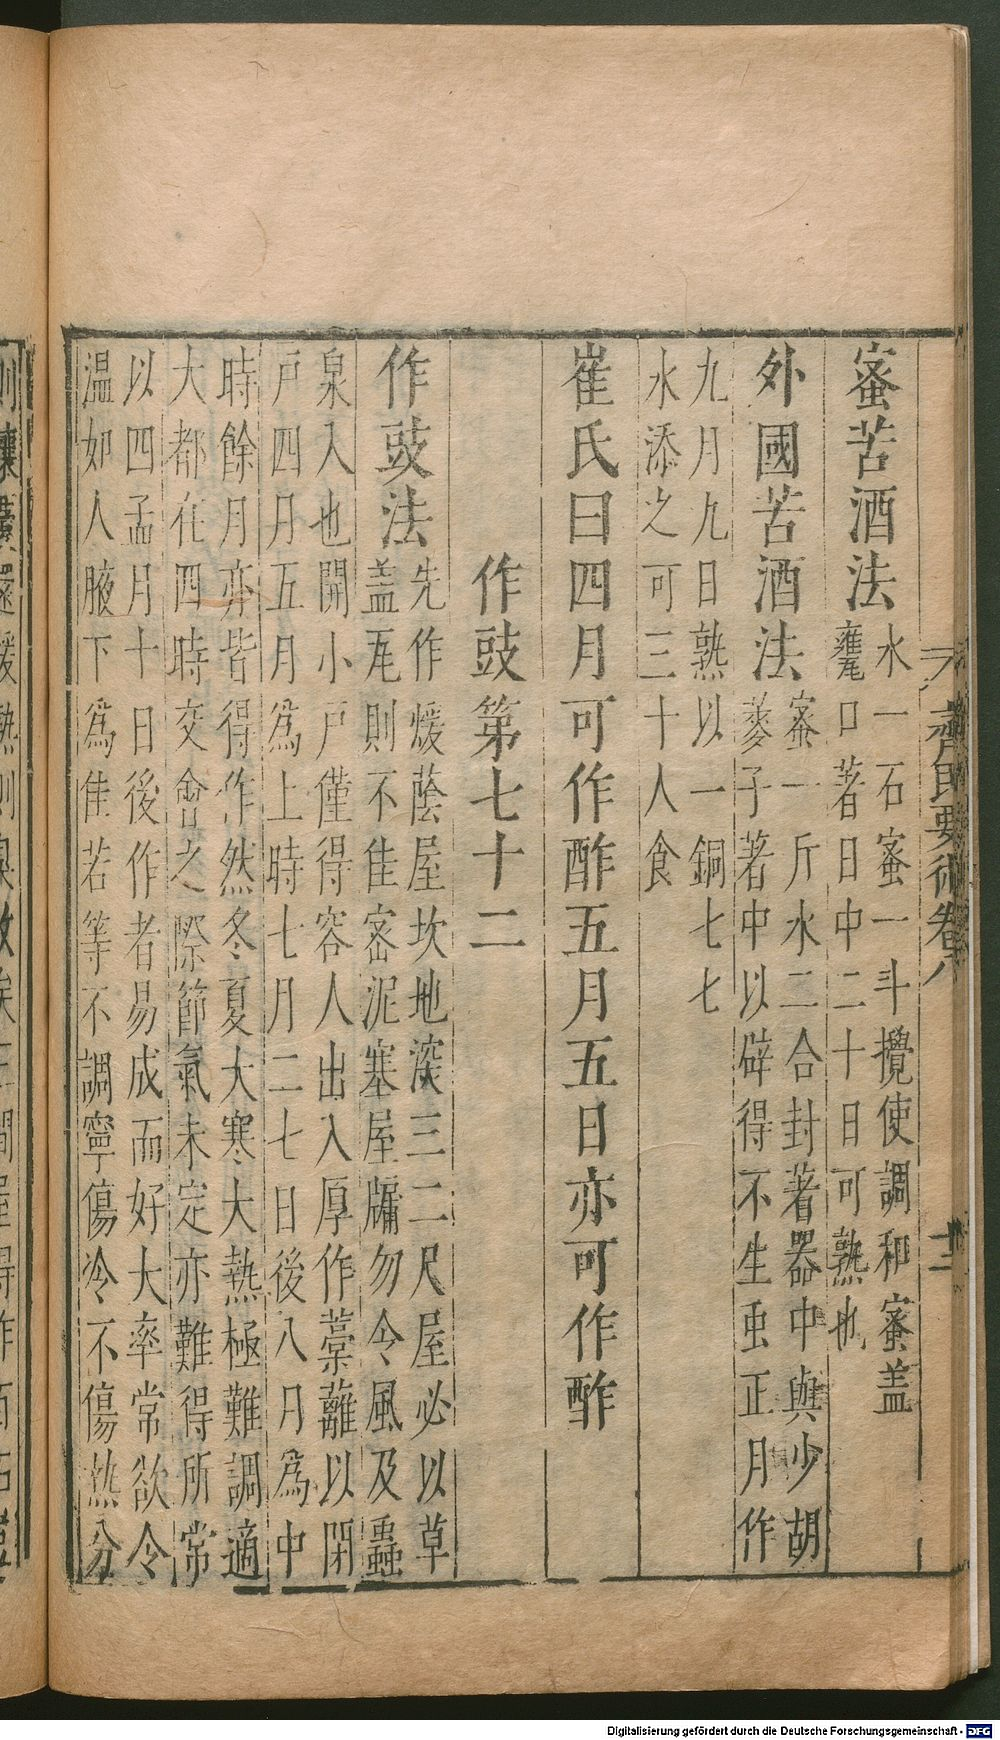 齊民要術卷八 十一
蜜苦酒法水一石蜜一斗攪使調和蜜盖
甕口著日中二十日可熟也
外國苦酒法蜜一斤水二合封著器中與少胡
荾子著中以辟得不生虫正月作
九月九日熟以一銅七七
水添之可三十人食
崔氏曰四月可作酢五月五日亦可作酢
作豉第七十二
作豉法先作煖蔭屋坎地深三二尺屋必以草
盖瓦則不佳密泥塞屋牖勿令風及蟲
泉入也開小戸僅得容人出入厚作藁蘺以閉
戸四月五月為上時七月二七日後八月為中
時餘月亦皆得作然冬夏大寒大熱極難調適
大都在四時交會之際節氣未定亦難得所常
以四孟月十日後作者易成而好大率常欲令
温如人腋下為佳若等不調寧傷冷不傷熱分
Digitalisierung gefördert durch die Deutsche Forschungsgemeinschaft - DFG